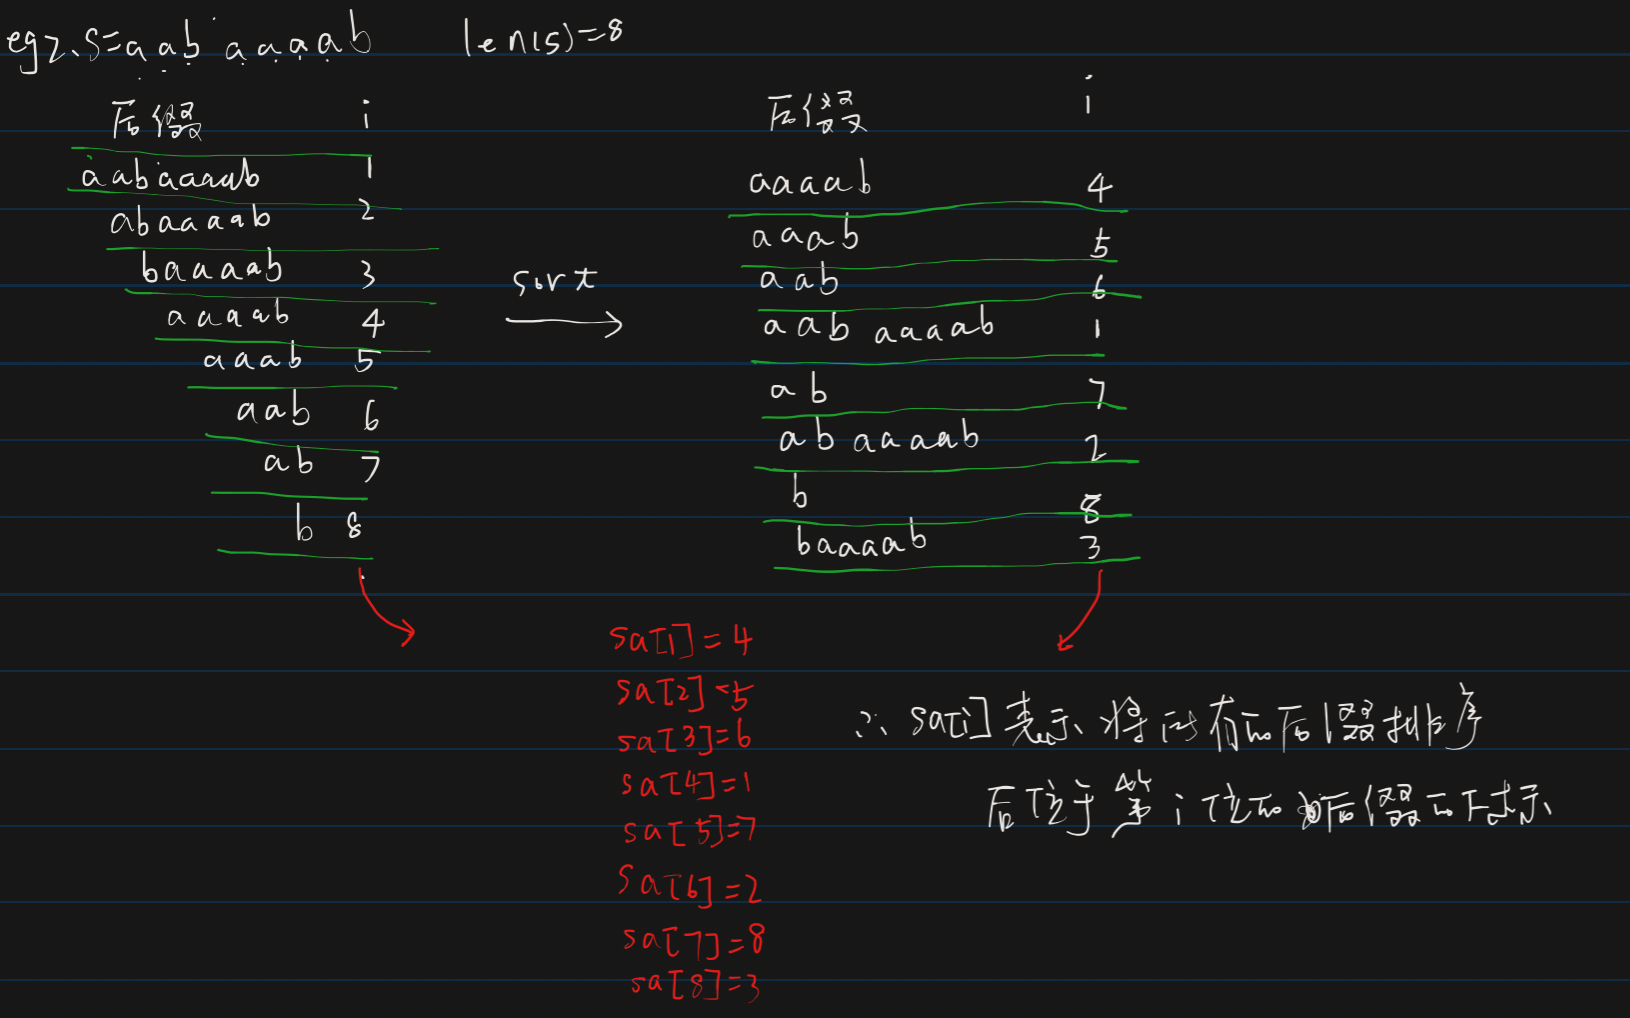 eg2. S=aabaaaab len(s)=8
后缀 i
aabaaaab 1
abaaaab 2
baaaab 3
aaaab 4
aaab 5
aab 6
ab 7
b 8
sort
后缀 i
aaaab 4
aaab 5
aab 6
aabaaaab 1
ab 7
abaaaab 2
b 8
baaaab 3
sa[1]=4
sa[2]=5
sa[3]=6
sa[4]=1
sa[5]=7
sa[6]=2
sa[7]=8
sa[8]=3
∴ sa[i]表示将所有的后缀排序
后位于第i位的后缀的下标